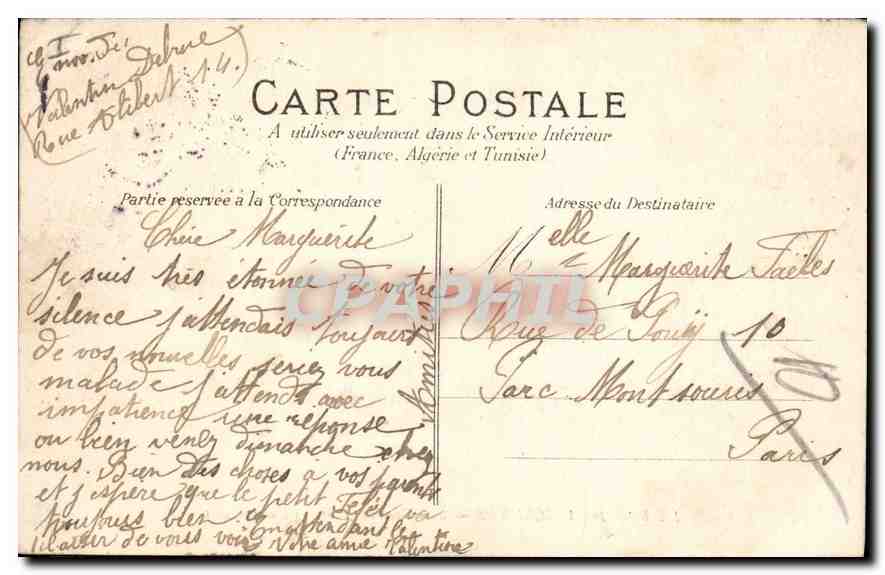 nov.
Valentin
Rue Alibert 14)
CARTE POSTALE
A utiliser seulement dans le Service Intérieur
(France, Algérie et Tunisie)
Partie réservée à la Correspondance
Adresse du Destinataire
Chère Marguérite
Je suis très étonnée de votre
silence j'attendais toujours
de vos nouvelles seriez vous
malade j'attends avec
impatience une réponse
ou bien venez dimanche chez
nous. Bien des choses a vos parents
et j'espère que le petit va
toujours bien en attendant le
plaisir de vous voir Votre amie Valentine
Amitiés
Melle Marguerite
Rue de 10
Parc Montsouris
Paris
CPAPHIL